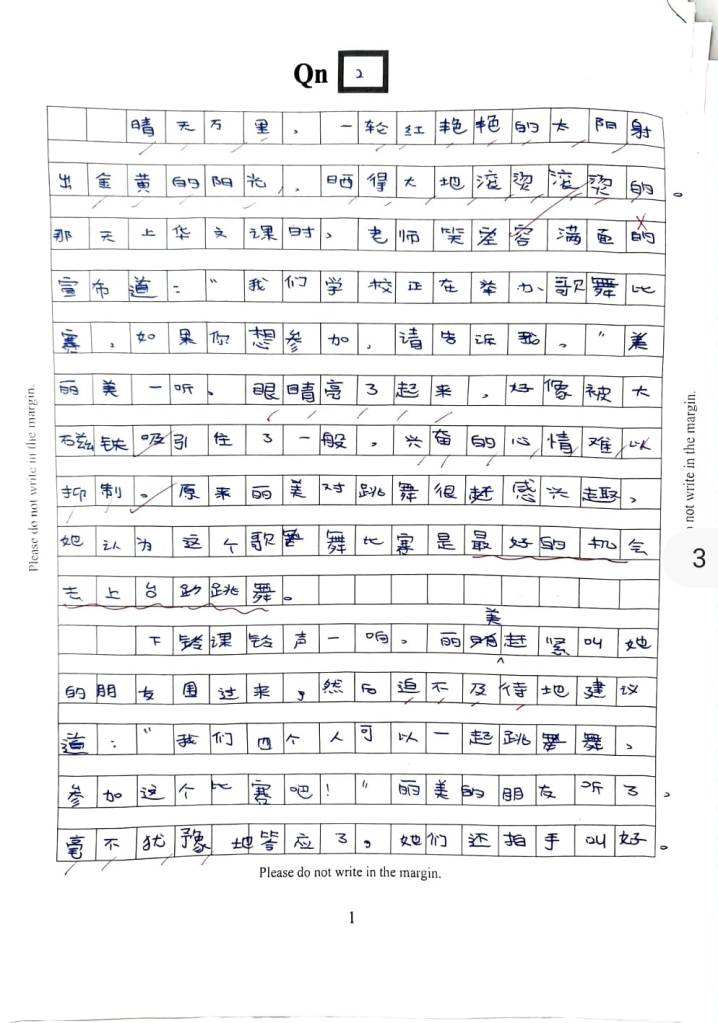 Qn 2
晴天万里，一轮红艳艳的太阳射
出金黄的阳光，晒得大地滚烫滚烫的。
那天上华文课时，老师笑容满面的
宣布道：“我们学校正在举办歌舞比
赛，如果你想参加，请告诉我。”美
丽美一听，眼睛亮了起来，好像被大
磁铁吸引住了一般，兴奋的心情难以
抑制。原来丽美对跳舞很感兴趣，
她认为这个歌舞比赛是最好的机会
去上台跳舞。
下课铃声一响，丽美赶紧叫她
的朋友围过来，然后迫不及待地建议
道：“我们四个人可以一起跳舞，
参加这个比赛吧！”丽美的朋友听了，
毫不犹豫地答应了，她们还拍手叫好。
Please do not write in the margin.
1
Please do not write in the margin.
not write in the margin.
3